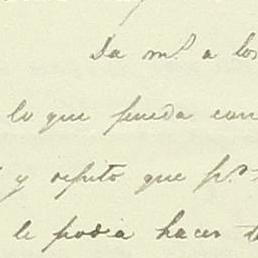 Da m.º a los
lo que pueda con
y repito que p.ª
le podia hacer